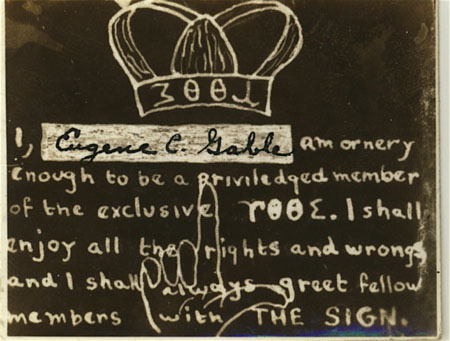 3θθɹ
I, Eugene C. Gable am ornery
enough to be a priviledged member
of the exclusive rθθΣ. I shall
enjoy all the rights and wrongs
and I shall always greet fellow
members with THE SIGN.